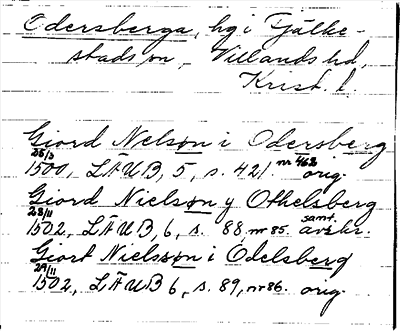 Odersberga, hg i Fjälke-
stads sn, Villands hd,
Krist. l.
Giord Nelson i Odersberg
28/3 1500, LÄUB, 5, s. 421. nr 463 orig.
Giord Nielson y Othelsberg
28/11 1502, LÄUB, 6, s. 88, nr 85. samt. avskr.
Giort Nielsson i Odelsberg
29/11 1502, LÄUB 6, s. 89, nr 86. orig.